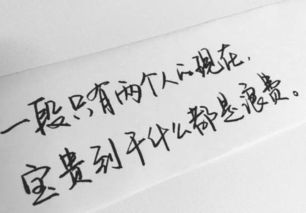 一段只有两个人的现在,
宝贵到干什么都是浪费。